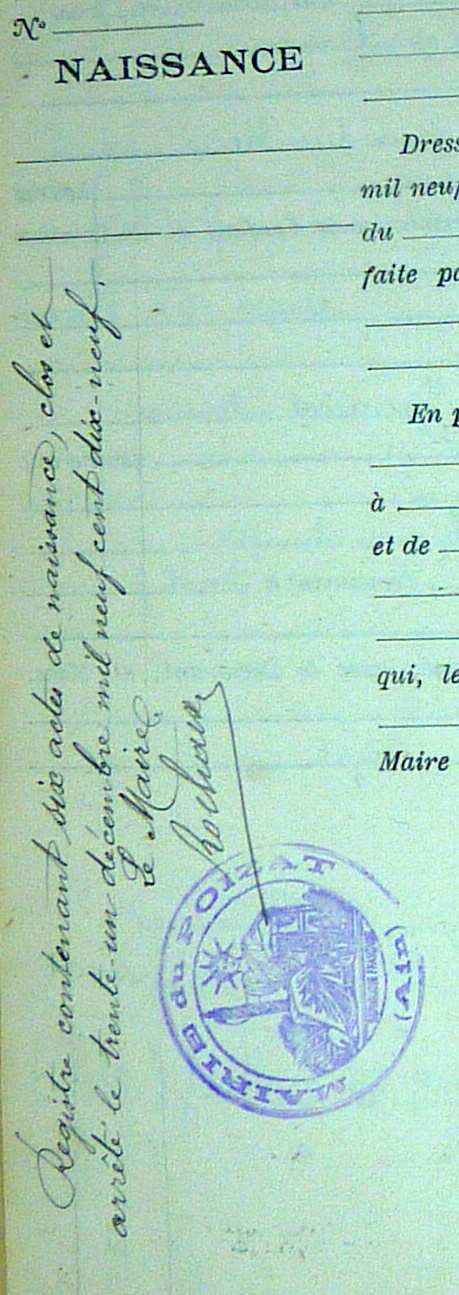 N°
NAISSANCE
Dress
mil neuf
du
faite pa
En p
à
et de
qui, le
Maire
Registre contenant six actes de naissance, clos et
arrêté le trente-un décembre mil neuf cent dix-neuf.
Le Maire
MAIRIE du POIZAT
(Ain)